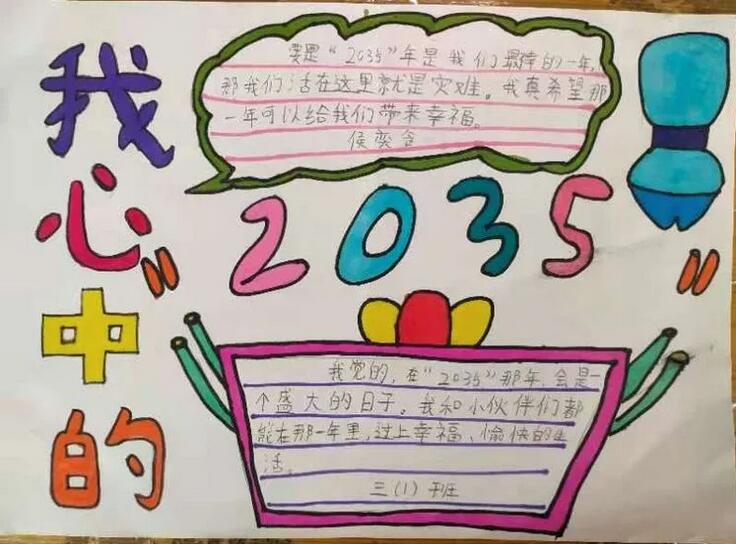 我心中的
"2035"
要是“2035”年是我们最惨的一年，
那我们活在这里就是灾难。我真希望那
一年可以给我们带来幸福。
侯奕含
我觉的，在“2035”那年，会是一
个盛大的日子。我和小伙伴们都
能在那一年里，过上幸福、愉快的生
活。
三（1）班